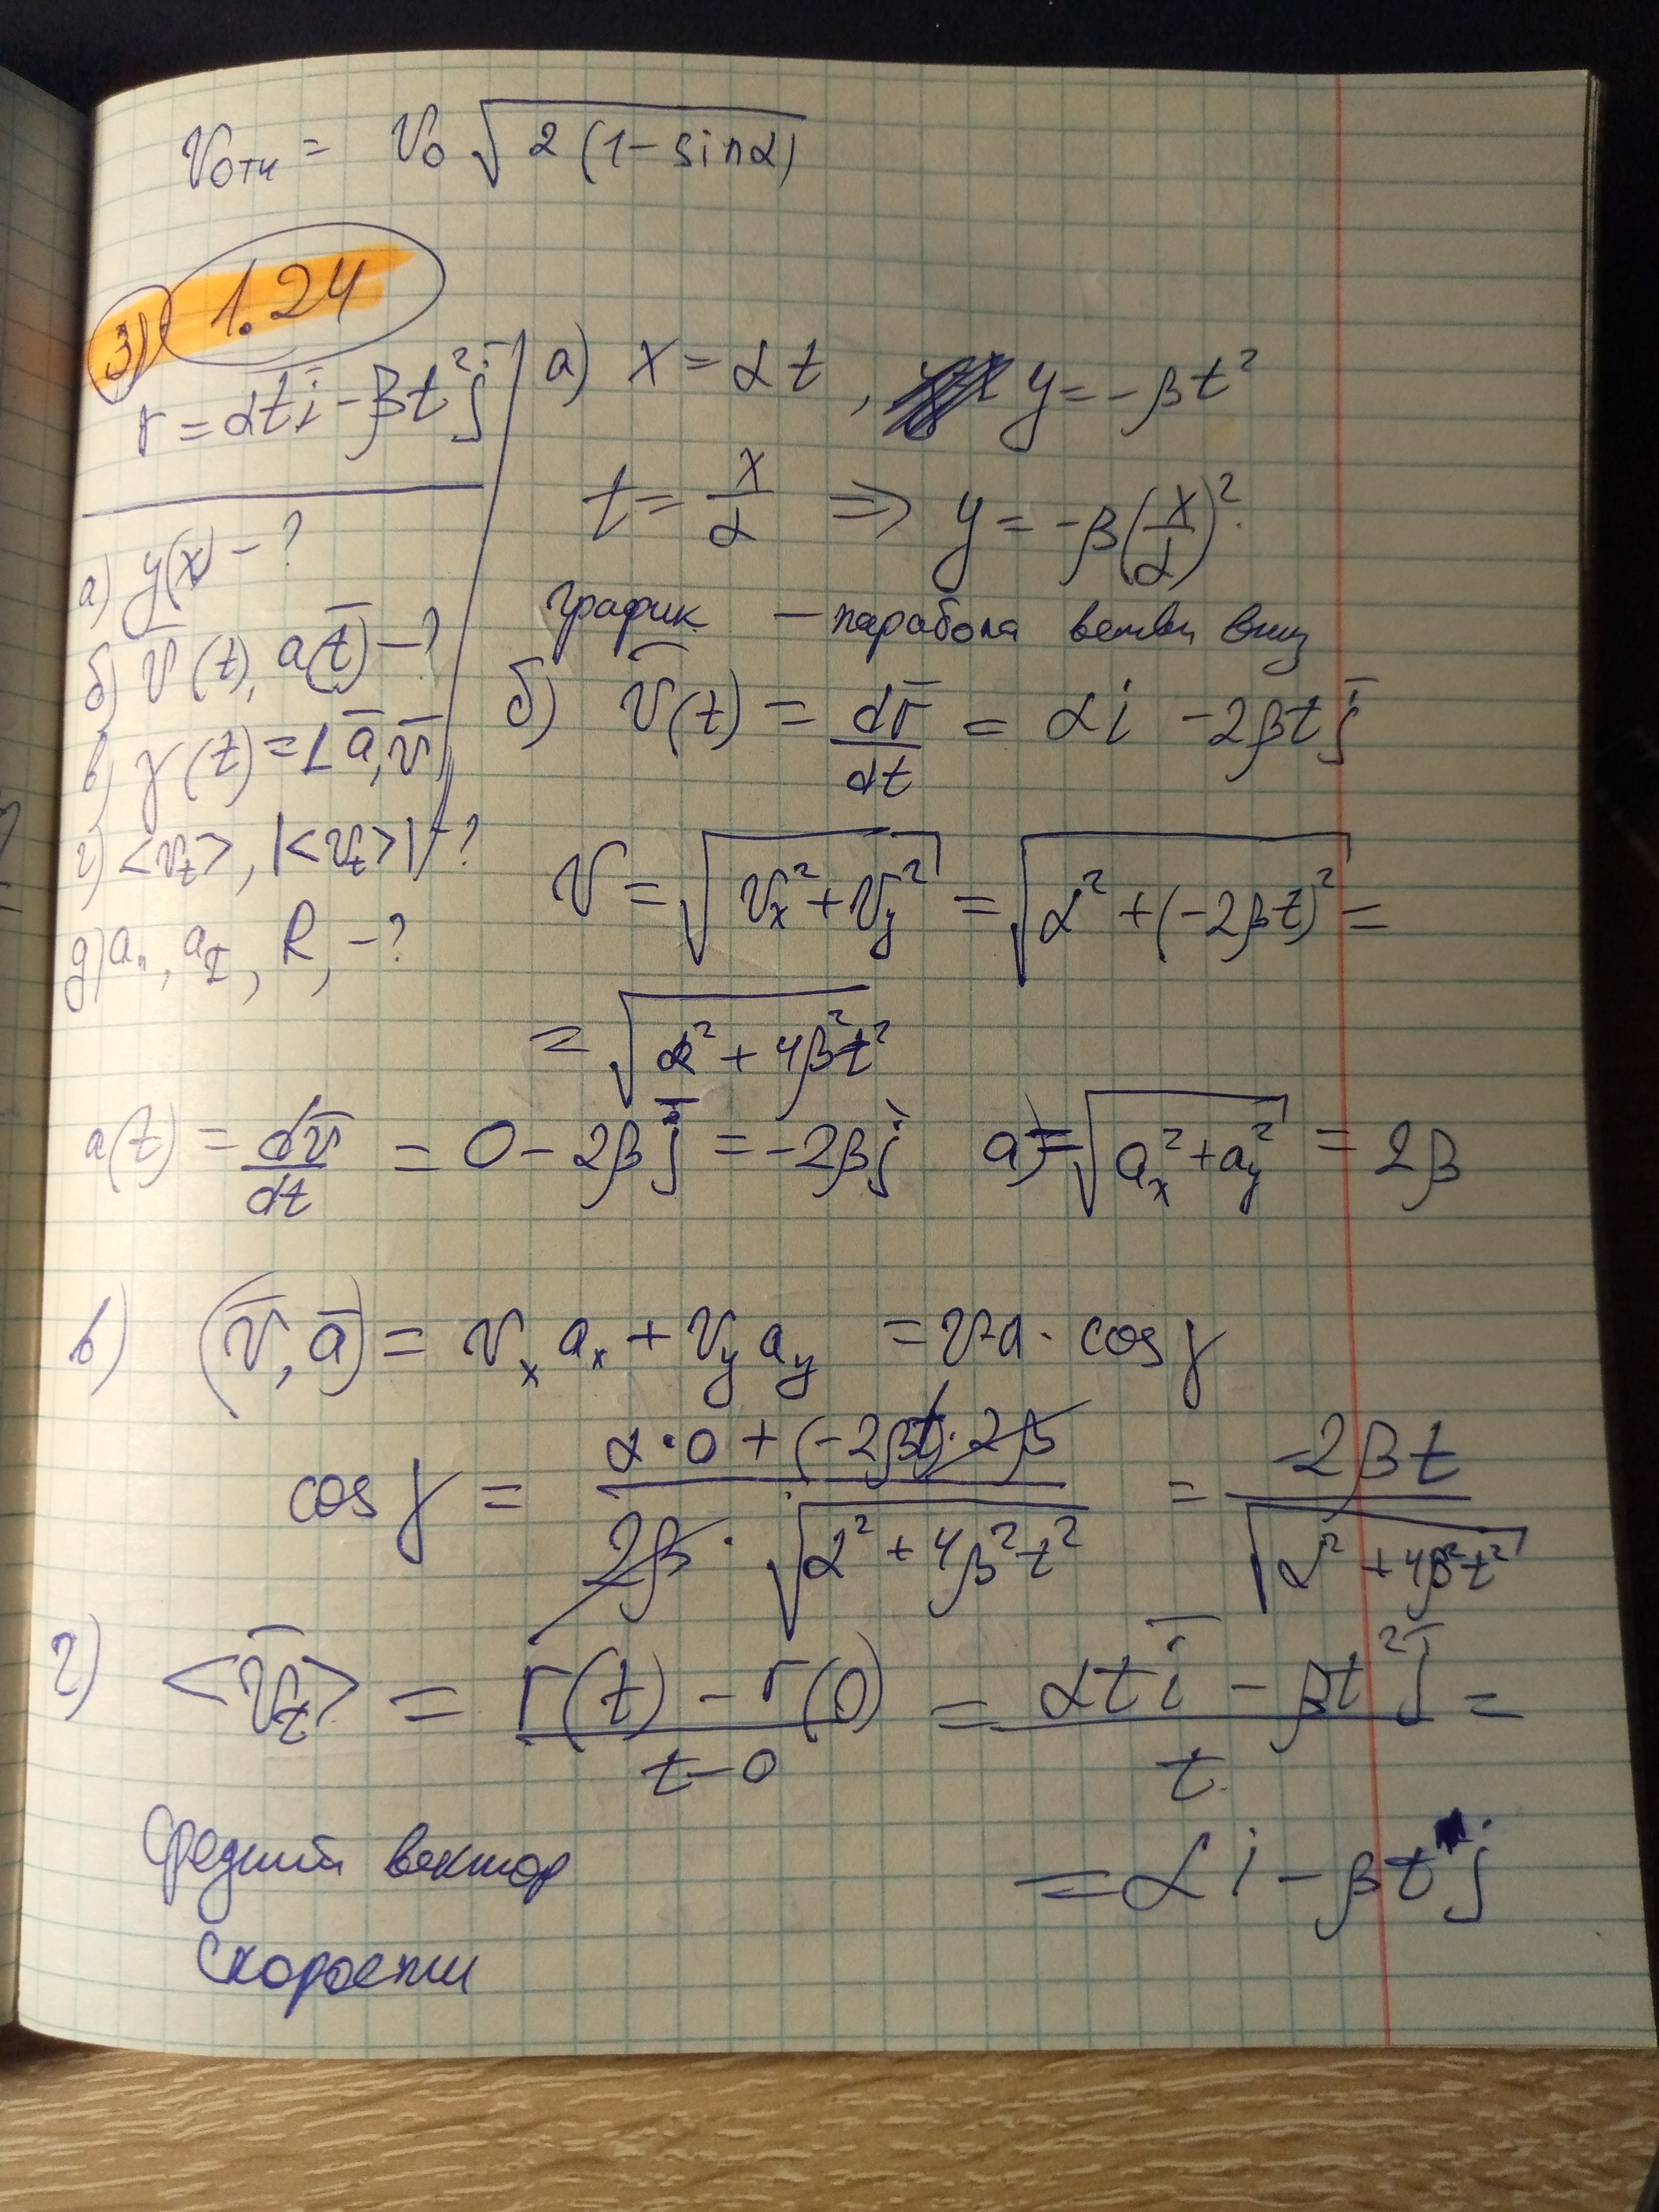 v̅отн = v₀ √(2 (1 - sinα))
3) 1.24
r̅ = αt i̅ - βt² j̅
а) y(x) - ?
б) v̅(t), a̅(t) - ?
в) γ(t) = ∠ a̅, v̅
г) <v̅t>, |<v̅t>| - ?
д) aₙ, aτ, R, - ?
а) x = αt, y = -βt²
t = x/α => y = -β(x/α)².
график - парабола ветви вниз
б) v̅(t) = dr̅/dt = αi - 2βt j̅
v = √(vx² + vy²) = √(α² + (-2βt)²) =
= √(α² + 4β²t²)
a(t) = dv̅/dt = 0 - 2β j̅ = -2βj a = √(ax² + ay²) = 2β
в) (v̅, a̅) = vx ax + vy ay = v·a · cos γ
cos γ = (α·0 + (-2βt)·2β)/(2β · √(α² + 4β²t²)) = -2βt/√(α² + 4β²t²)
г) <v̅t> = (r(t) - r(0))/(t - 0) = (αt i̅ - βt² j̅)/t =
= αi - βt j
Средний вектор
скорости